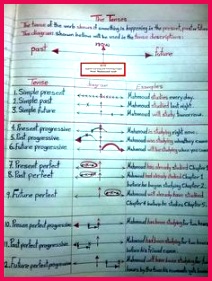 The Tenses
The tense of the verb shows if something is happening in the present, past or future.
The diagram shown below will be used in the tense descriptions:
now
past
future
Tense
Diagram
Examples
1. Simple present
Mahmoud studies every day.
2. Simple past
Mahmoud studied last night.
3. Simple future
Mahmoud will study tomorrow.
4. Present progressive
Mahmoud is studying right now.
5. Past progressive
Mahmoud was studying when they came
6. Future progressive
Mahmoud will be studying when you come
7. Present perfect
Mahmoud has already studied Chapter 1
8. Past perfect
Mahmoud had already studied Chapter 1
before he began studying Chapter 2.
9. Future perfect
Mahmoud will already have studied
Chapter 4 before he studies Chapter 5.
10. Present perfect progressive
Mahmoud has been studying for two hours
11. Past perfect progressive
Mahmoud had been studying for two hours
before his friend came.
12. Future perfect progressive
Mahmoud will have been studying for two
hours by the time his roommate gets home